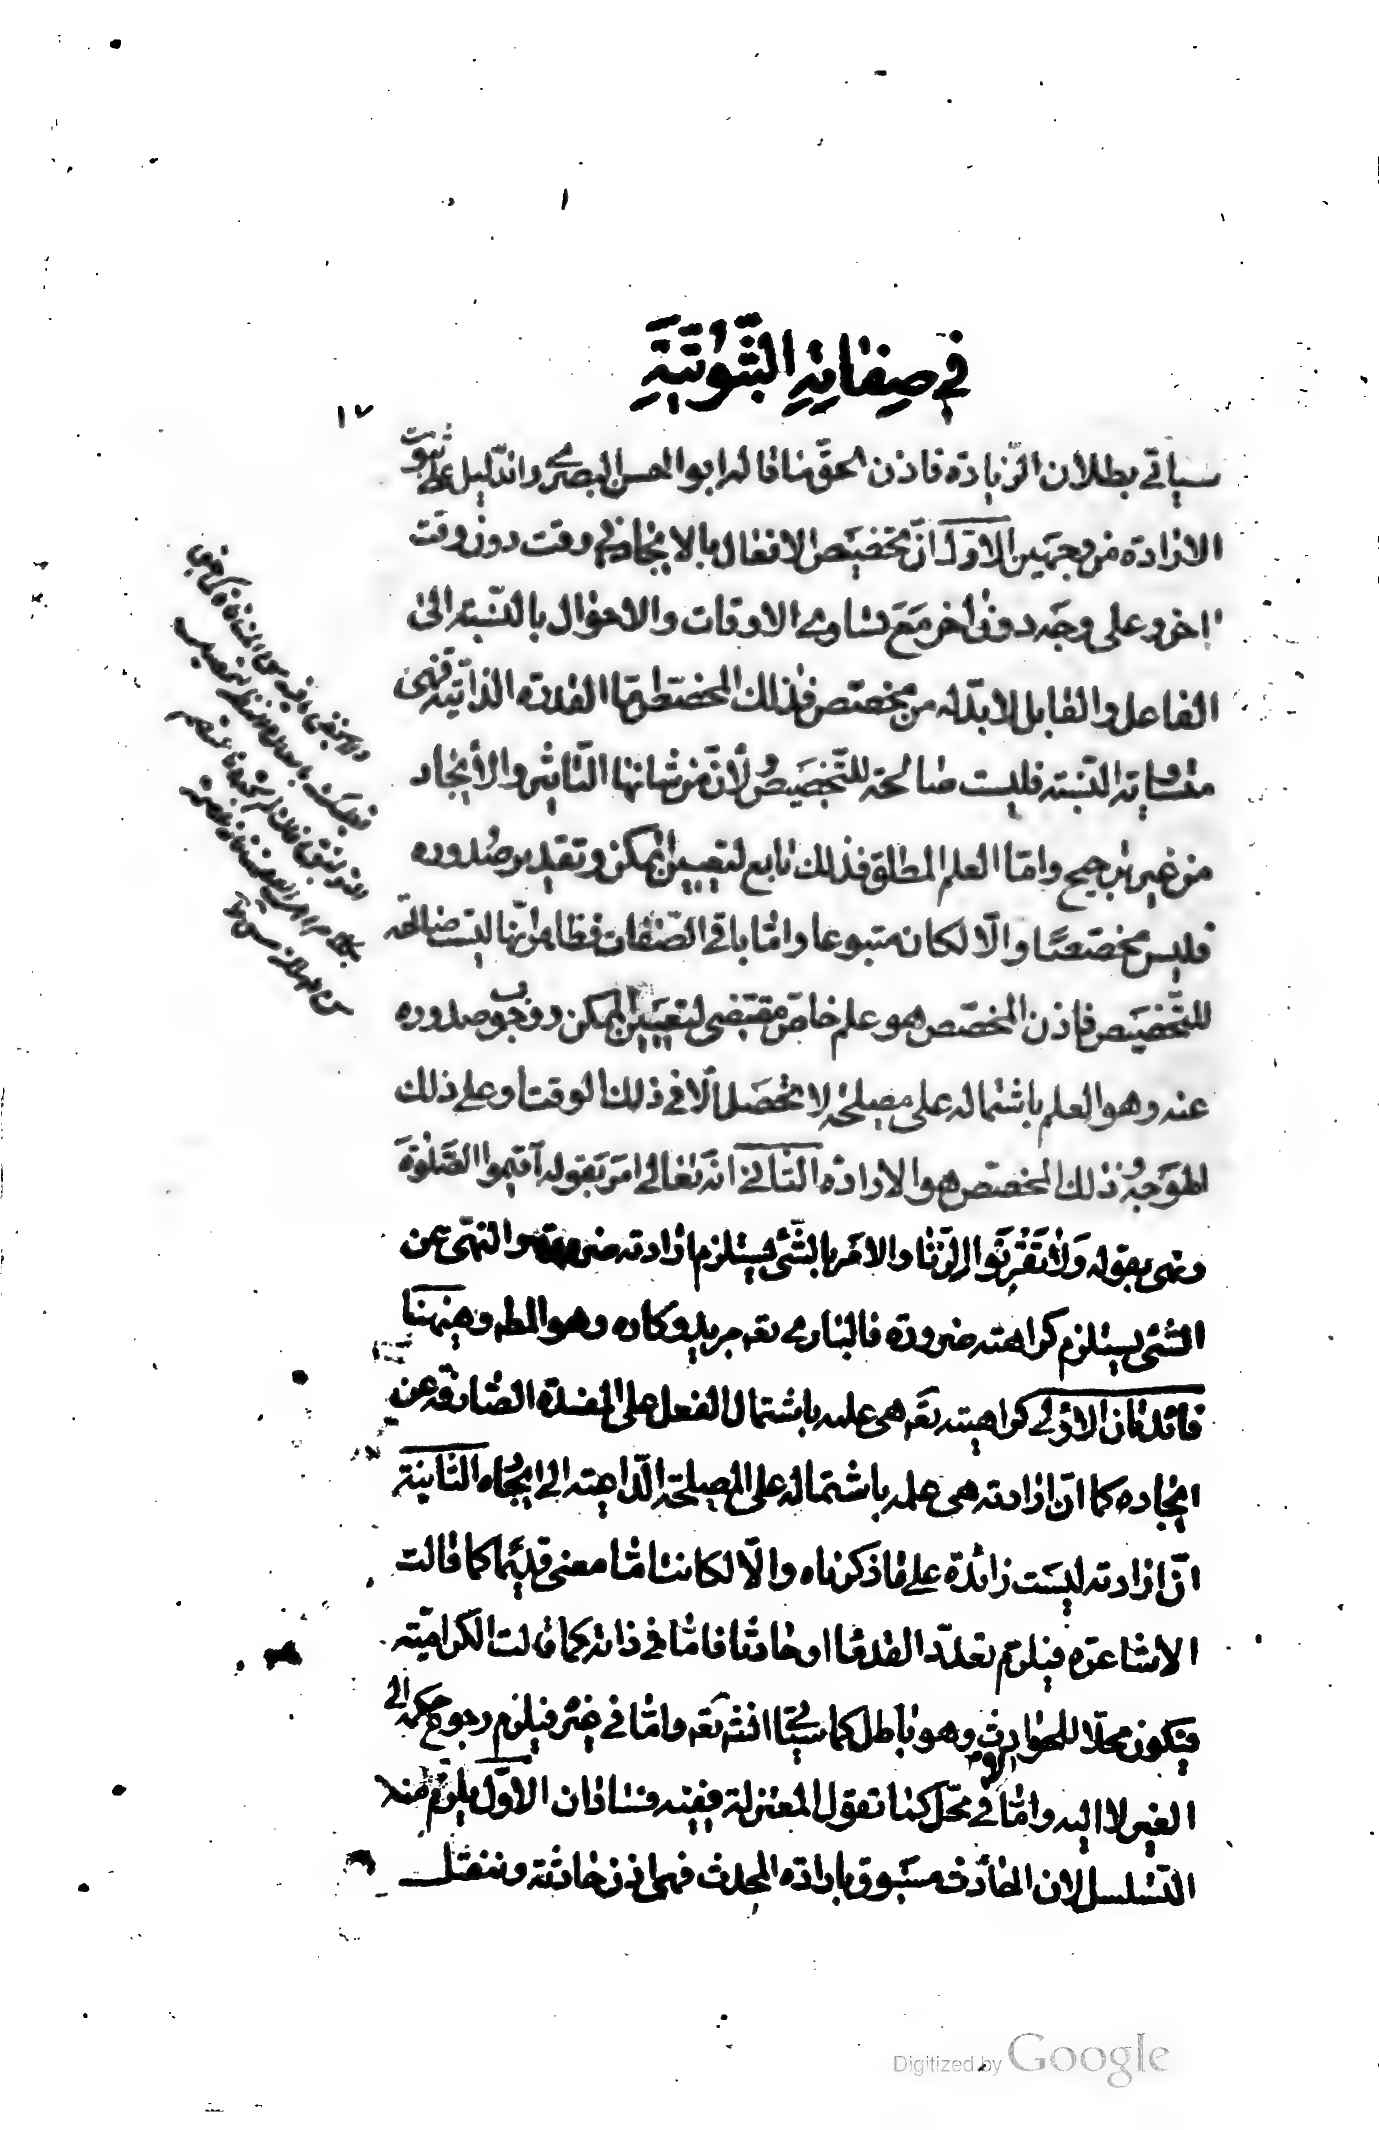 في صِفٰاتِهِ الثُّبُوتِيَّةِ
١٧
سياتي بطلان الزّيادة فاذن الحقّ ما قاله ابو الحسن البصري والدّليل على ثبوت
الارادة من وجهين الاوّل انّ تخصيص الافعال بالايجاد في وقت دون وقت
اخر وعلى وجه دون اخر مع تساوي الاوقات والاحوال بالنّسبة الى
الفاعل والقابل لا بدّ له من مخصّص فذلك المخصّص امّا القدرة الذاتيّة فهى
متساوية النّسبة فليست صالحة للتّخصيص ولأنّ من شانها التّاثير والايجاد
من غير ترجيح وامّا العلم المطلق فذلك تابع لتعيين الممكن وتقدير صدوره
فليس مخصّصا والّا لكان متبوعا وامّا باقي الصّفات فظاهر انّها ليست صالحة
للتّخصيص فاذن المخصّص هو علم خاصّ مقتضى لتعيين الممكن ووجوب صدوره
عنه وهو العلم باشتماله على مصلحة لا تحصل الّا في ذلك الوقت او على ذلك
الوجه وذلك المخصّص هو الارادة الثّاني انّه تعالى امر بقوله اَقيموا الصّلوٰةَ
ونهى بقوله وَلٰا تَقْرَبُوا الزِّنٰا والامر بالشّئ يستلزم ارادته ضرورة والنّهى عن
الشئ يستلزم كراهته ضرورة فالباري تعه مريد وكاره وهو المطه وهيٰهنا
فائدتان الاولى كراهيته تعه هى علمه باشتمال الفعل على المفسدة الصّارفة عن
ايجاده كما انّ ارادته هى علمه باشتماله على المصلحة الدّاعية الى ايجاده الثّانية
انّ ارادته ليست زائدة على ما ذكرناه والّا لكانت امّا معنى قديما كما قالت
الاشاعرة فيلزم تعدّد القدما او حادثا فامّا في ذاته كما قالت الكراميّة
فيكون محلّا للحوادث وهو باطل كما سيأتي انشه تعه وامّا في غيره فيلزم رجوع حكمه الى
الغير لا اليه وامّا لا في محلّ كما تقول المعتزلة ففيه فسادان الاوّل يلزم منه
التّسلسل لان الحادث مسبوق بارادة المحدث فهى اذن حادثة وننقل